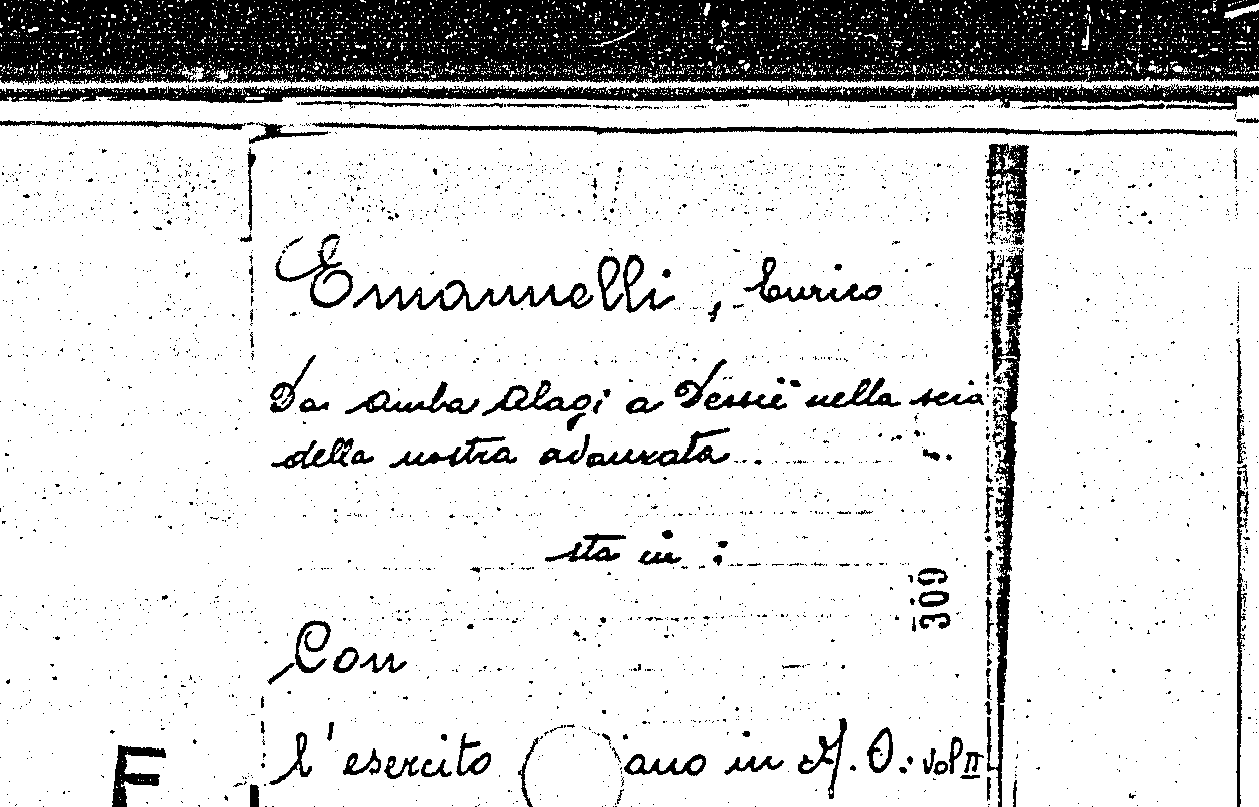 Emanuelli, Enrico
Da Amba Alagi a Dessiè nella scia
della nostra avanzata.
sta in :
309
Con
l'esercito ano in A. O. : vol II
E